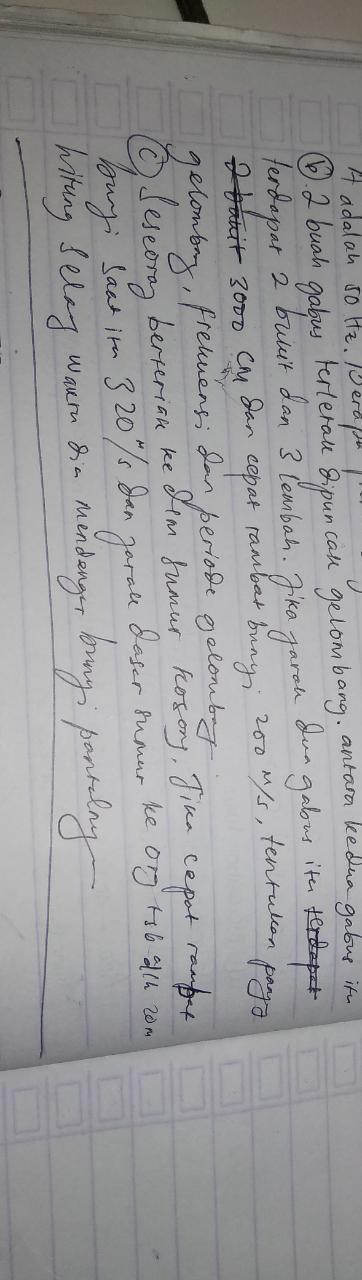 A adalah 50 Hz. Berapa
(b). 2 buah gabus terletak dipuncak gelombang. antara kedua gabus itu
terdapat 2 bukit dan 3 lembah. Jika jarak dua gabus itu terdapat
2 bukit 3000 cm dan cepat rambat bunyi 200 m/s, tentukan panjg
gelombang, frekuensi dan periode gelombang
(c) Seseorang berteriak ke dlm sumur kosong. Jika cepat rambat
bunyi saat itu 320 m/s dan jarak dasar sumur ke org tsb adlh 20m
hitung Selang waktu dia mendengar bunyi pantulnya